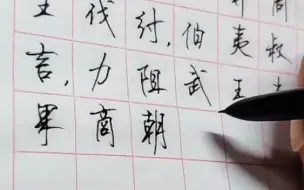 王伐纣，伯夷叔
言，力阻武王
商朝